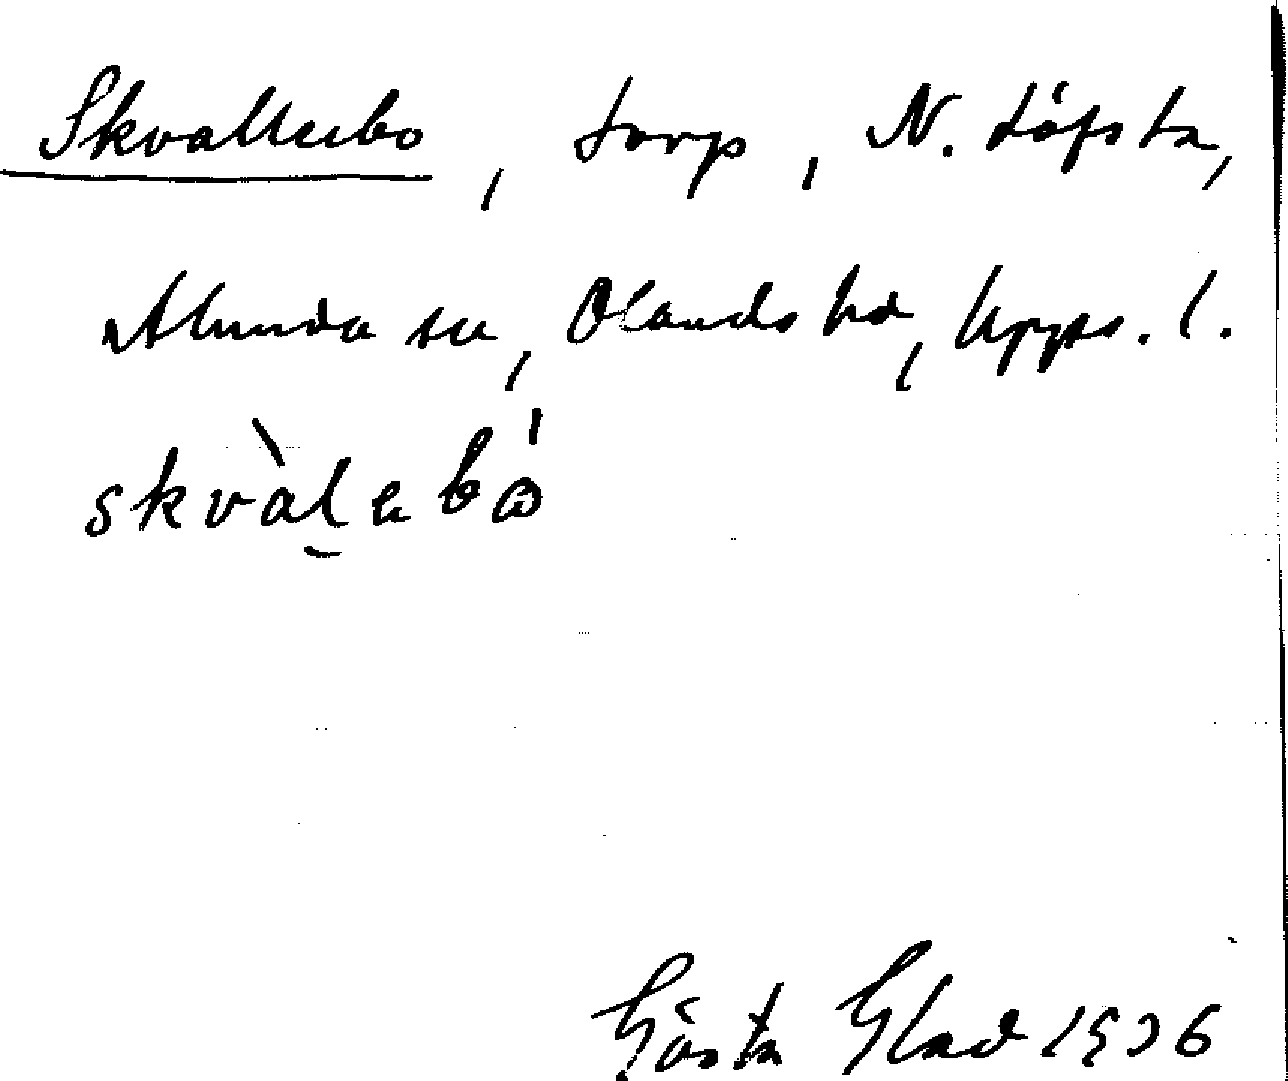 Skvallerbo, torp, N. Löfsta,
Alunda sn, Olands hd, Upps. l.
skvàlebó
Gösta Glad 1936